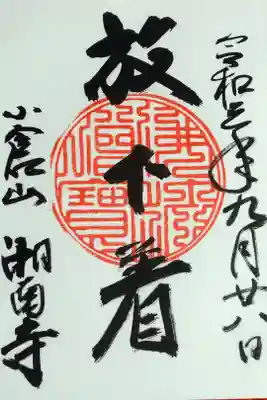 令和三年九月廿八日
放下着
佛法僧寶
小倉山 湘南寺